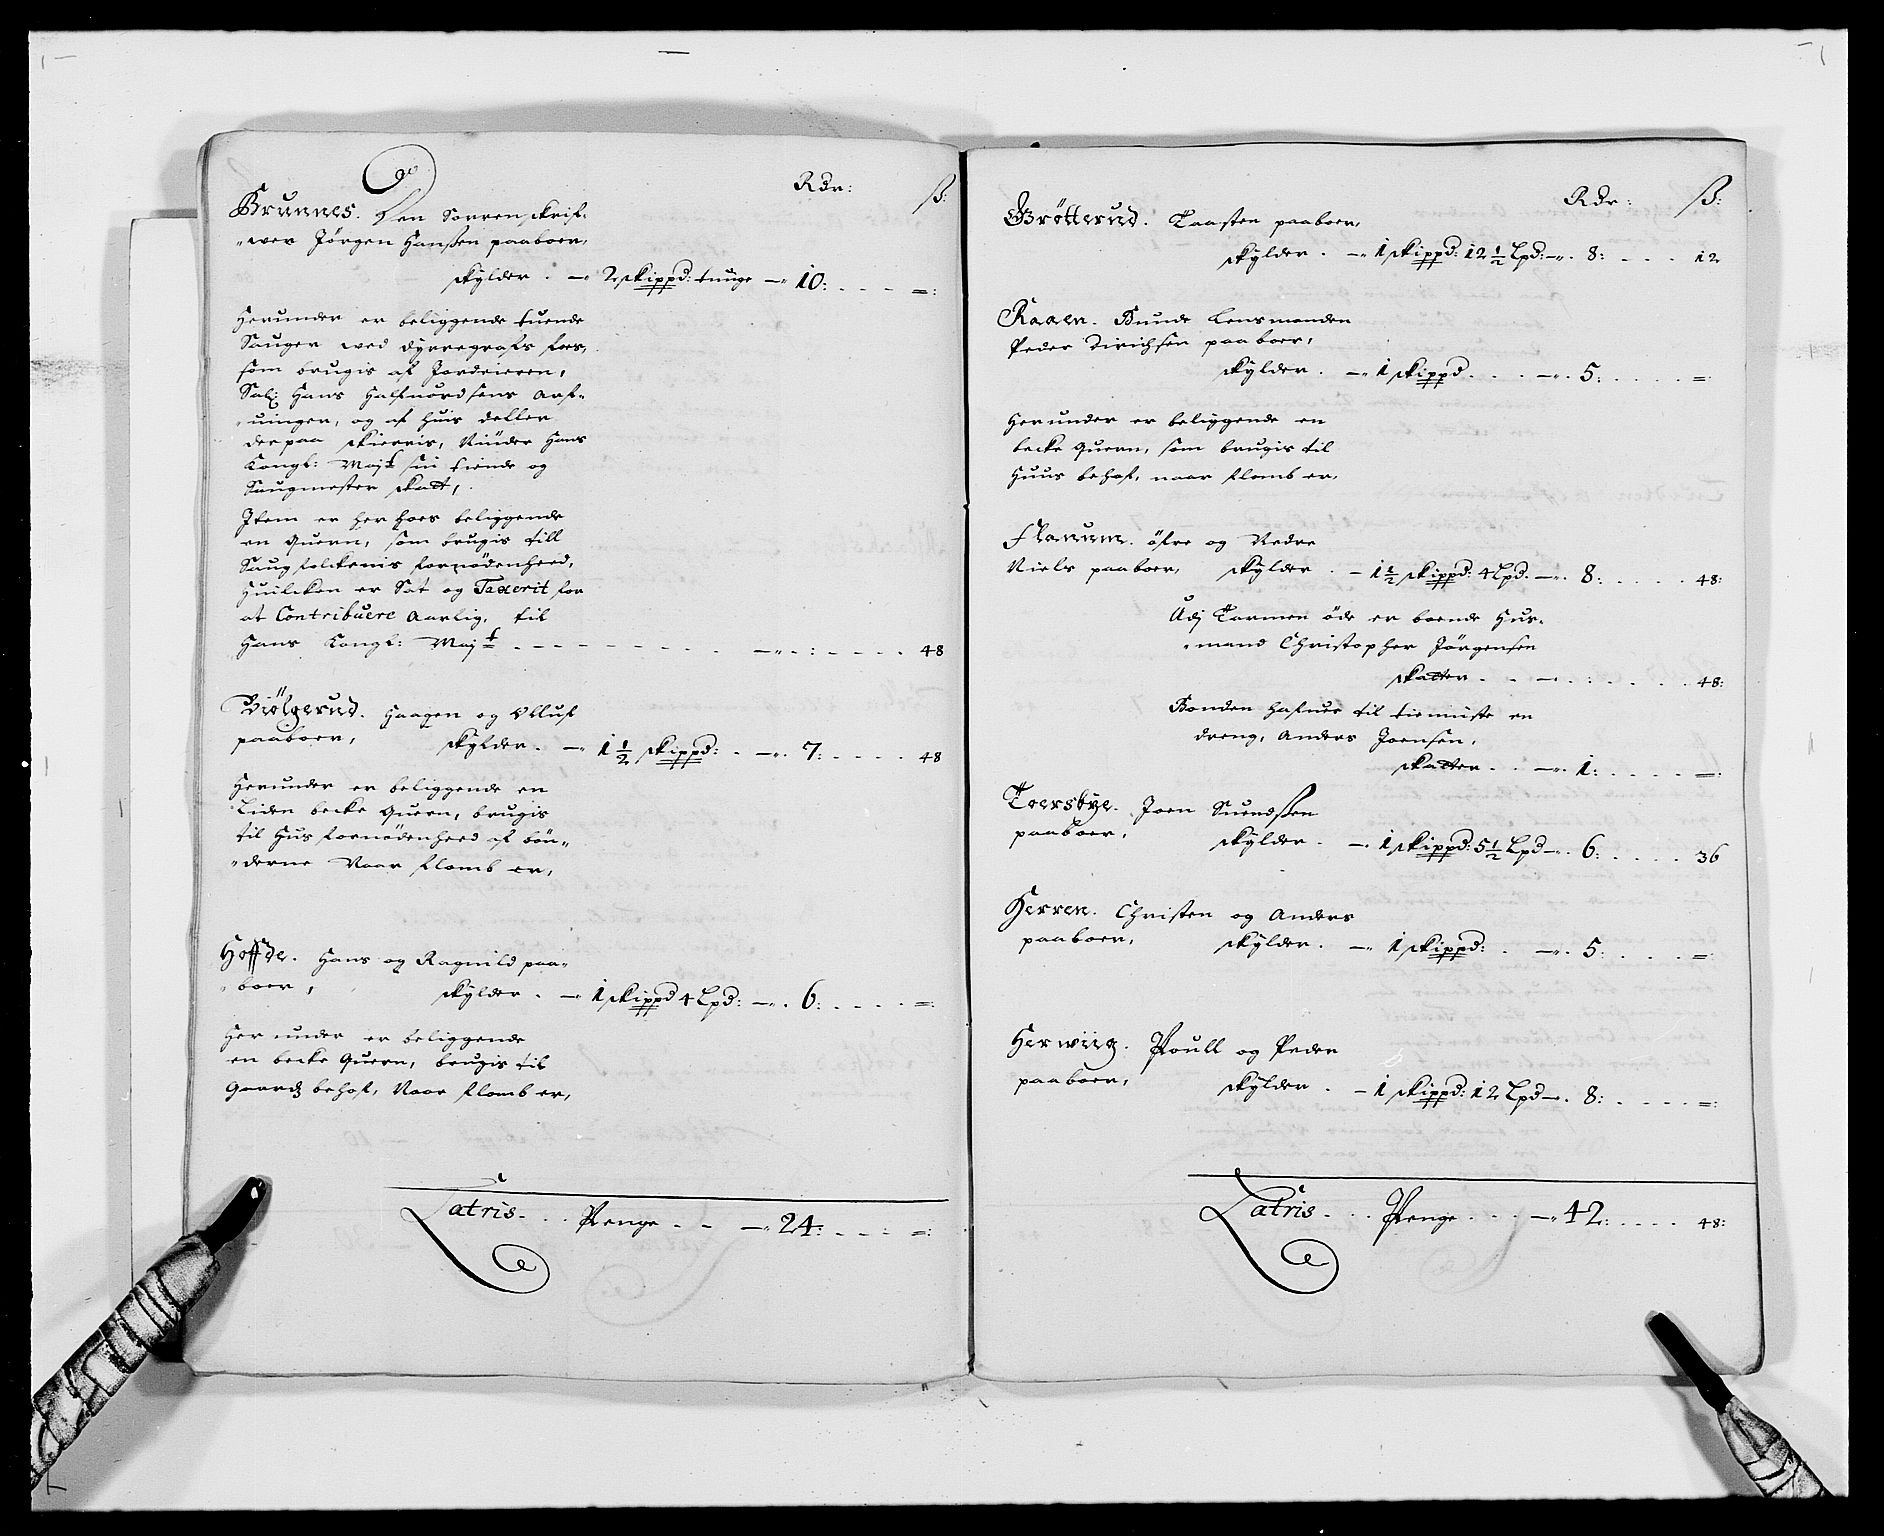 Rdr: ß:
Brunnes. Den Sorrenskrif-
wer Jörgen Hanßen paaboer,
skylder . — 2 skippd: tunge — 10: . - - - =:
Herunder er beliggende tuende
Sauger wed dyrregrafs foes,
som brugis af Jordeieren,
Sal: Hans Halfuordsens Arf-
uinger, og af huis deller
der paa skierris, Niuder Hans
Kongl: Mayt sin tiende og
Saugmester skatt,
Item er her hoes beliggende
en quern, som brugis till
Saugfolckenis fornödenheed,
Huilcken er Sat og Taxerit for
at Contribuere Aarlig, til
Hans Kongl: Mayt - - - - - — . : - - - - 48
Biölgerud. Haagen og Olluf
paaboer, skylder . — 1½ skippd: . — . 7: - - - - 48
Herunder er beliggende en
Liden becke quern, brugis
til Hus fornödenheed af bön-
derne Naar flomb er,
Hoffde. Hans og Ragnild paa-
boer, skylder . — 1 skippd 4 Lpd: — . 6: - - - - =:
Her under er beliggende
en becke quern, brugis til
Gaardz behof, Naar flomb er,
Latris . . . Penge . - — 24: - - - - =:
Rdr: ß:
Grötterud. Taasten paaboer,
skylder . — 1 skippd: 12½ Lpd: — . 8: - - - 12
Raaen. Bunde Lensmanden
Peder Dirichsen paaboer,
skylder . — 1 skippd . . . — . 5: . . . . =:
Herunder er beliggende en
becke quern, som brugis til
Huus behof, naar flomb er,
Flanum. öfre og Nedre
Niels paaboer, skylder . — 1½ skippd: 4 Lpd . — . 8: . . . . 48:
Udj Tarmen öde er boende Hus-
mand Christopher Jörgensen
skatter . . — . : . . . . 48:
Bonden hafuer til tienniste en
dreng, Anders Joensen,
skatter . . — . 1: . . . . =:
Toersbye. Joen Suendßen
paaboer, skylder . — 1 skippd: 5½ Lpd — . 6: . . . . 36
Herren. Christen og Anders
paaboer, skylder . — 1 skippd: . — . 5: . . . . =:
Herwiig. Poull og Peder
paaboer, skylder . — 1 skippd: 12 Lpd — . 8: . . . . =:
Latris . . . Penge . . . — 42: . . . . 48: